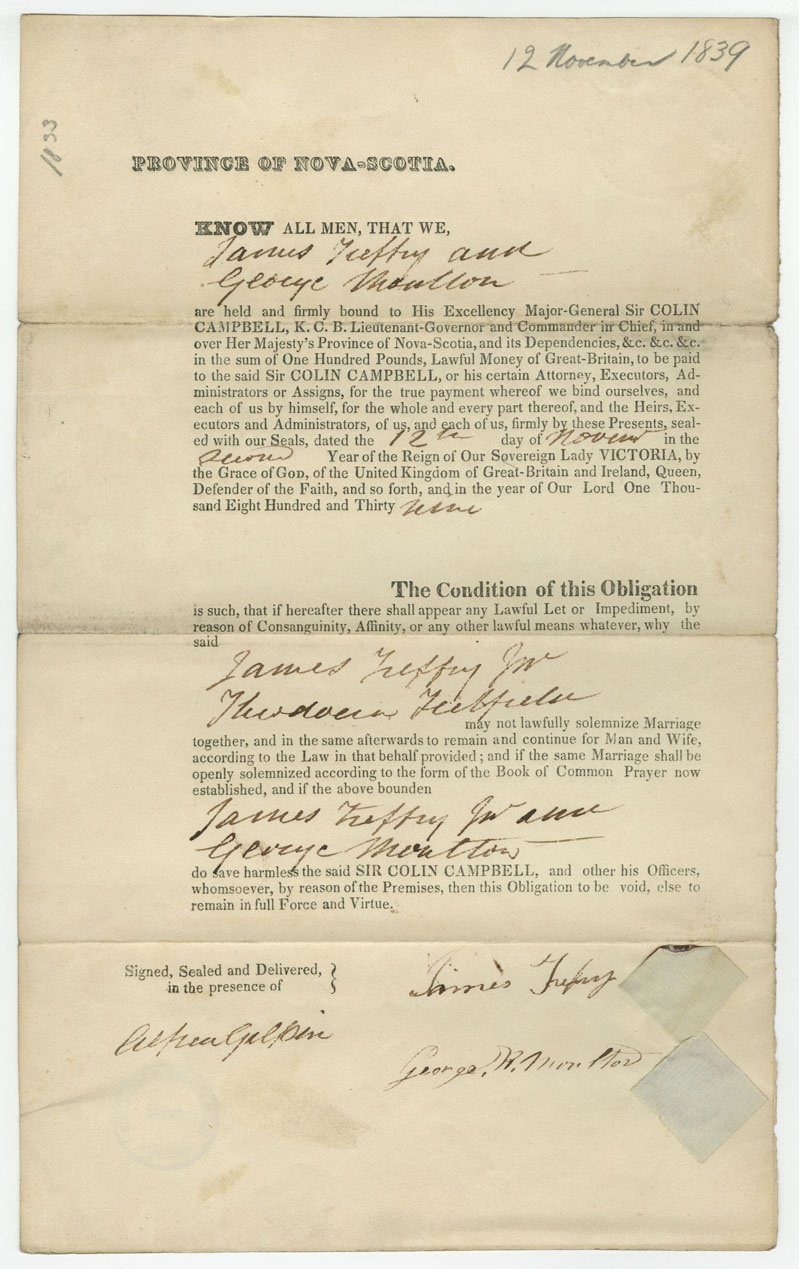 12 November 1839
1833
PROVINCE OF NOVA-SCOTIA.
KNOW ALL MEN, THAT WE,
James Treffry and
George Moulton
are held and firmly bound to His Excellency Major-General Sir COLIN
CAMPBELL, K. C. B. Lieutenant-Governor and Commander in Chief, in and
over Her Majesty's Province of Nova-Scotia, and its Dependencies, &c. &c. &c.
in the sum of One Hundred Pounds, Lawful Money of Great-Britain, to be paid
to the said Sir COLIN CAMPBELL, or his certain Attorney, Executors, Ad-
ministrators or Assigns, for the true payment whereof we bind ourselves, and
each of us by himself, for the whole and every part thereof, and the Heirs, Ex-
ecutors and Administrators, of us, and each of us, firmly by these Presents, seal-
ed with our Seals, dated the 12th day of in the
second Year of the Reign of Our Sovereign Lady VICTORIA, by
the Grace of GOD, of the United Kingdom of Great-Britain and Ireland, Queen,
Defender of the Faith, and so forth, and in the year of Our Lord One Thou-
sand Eight Hundred and Thirty nine
The Condition of this Obligation
is such, that if hereafter there shall appear any Lawful Let or Impediment, by
reason of Consanguinity, Affinity, or any other lawful means whatever, why the
said
James Treffry Jnr
Theodocia
may not lawfully solemnize Marriage
together, and in the same afterwards to remain and continue for Man and Wife,
according to the Law in that behalf provided ; and if the same Marriage shall be
openly solemnized according to the form of the Book of Common Prayer now
established, and if the above bounden
James Treffry Jnr and
George Moulton
do save harmless the said SIR COLIN CAMPBELL, and other his Officers,
whomsoever, by reason of the Premises, then this Obligation to be void, else to
remain in full Force and Virtue.
Signed, Sealed and Delivered,
in the presence of
James Trefry
Alfred Gilpin
George. R. Moulton